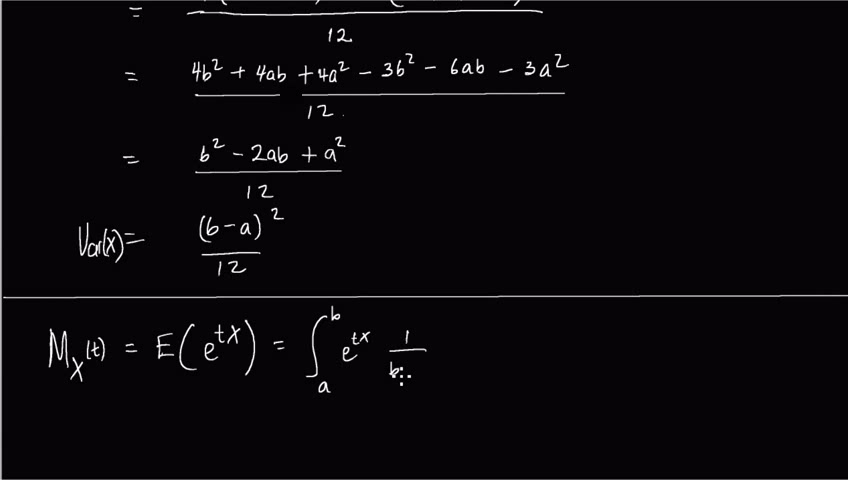 =
12
= 4b² + 4ab + 4a² - 3b² - 6ab - 3a²
12
= b² - 2ab + a²
12
Var(x) = (b-a)²
12
M_X(t) = E(e^{tX}) = ∫_a^b e^{tx} 1
b